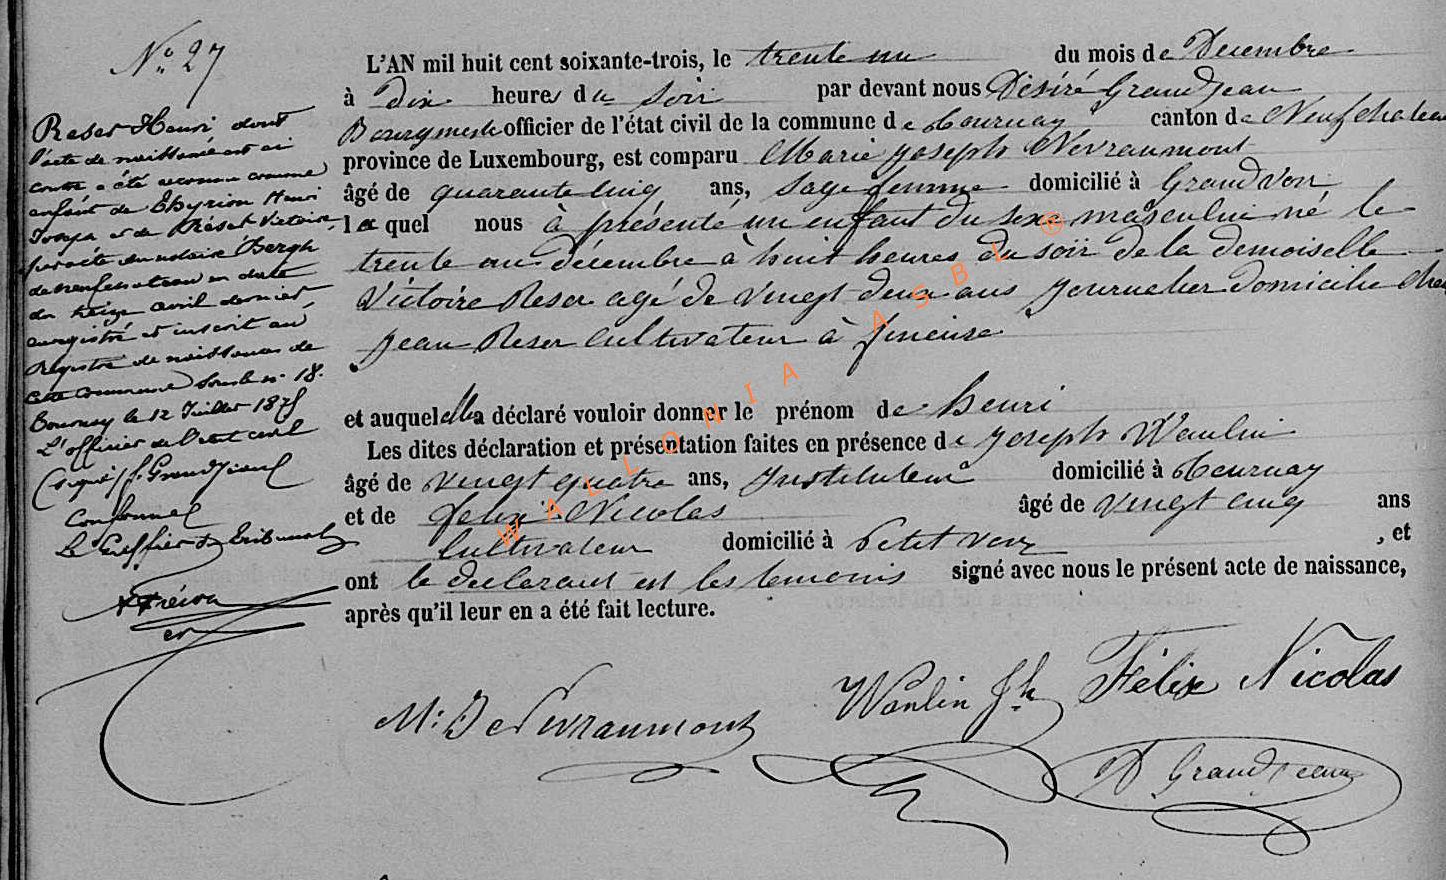 No. 27
Reser Henri dont
l'acte de naissance est ci
contre a été reconnu comme
enfant de Henri
Joseph et de Réser Victoire,
par acte du notaire Bergh
de neufchateau en date
du treize avril dernier,
enregistré et inscrit au
registre de naissances de
cette commune sous le n. 18.
Tournay le 12 Juillet 18
L'officier de l'état civil
(signé) J. Grandjean
Conforme
Le Greffier du Tribunal
L'AN mil huit cent soixante-trois, le trente un du mois de Decembre
à dix heures du soir par devant nous Désiré Grandjean
Bourgmestre officier de l'état civil de la commune de Tournay canton de Neufchateau
province de Luxembourg, est comparu Marie Joseph Nevraumont
âgé de quarante cinq ans, sage femme domicilié à Grandvoir
laquel nous à présenté un enfant du sexe masculin né le
trente un décembre à huit heures du soir de la demoiselle
Victoire Reser agé de vingt deux ans journalier domicilié chez
Jean Reser cultivateur à
et auquel elle a déclaré vouloir donner le prénom de henri
Les dites déclaration et présentation faites en présence de joseph Wanlin
âgé de vingt quatre ans, Instituteur domicilié à Tournay
et de felix Nicolas âgé de vingt cinq ans
Cultivateur domicilié à Petitvoir , et
ont le declarant et les temoins signé avec nous le présent acte de naissance,
après qu'il leur en a été fait lecture.
M: J Nevraumont Wanlin Jh Félix Nicolas
D Grandjean
WALLONIA ASBL ®